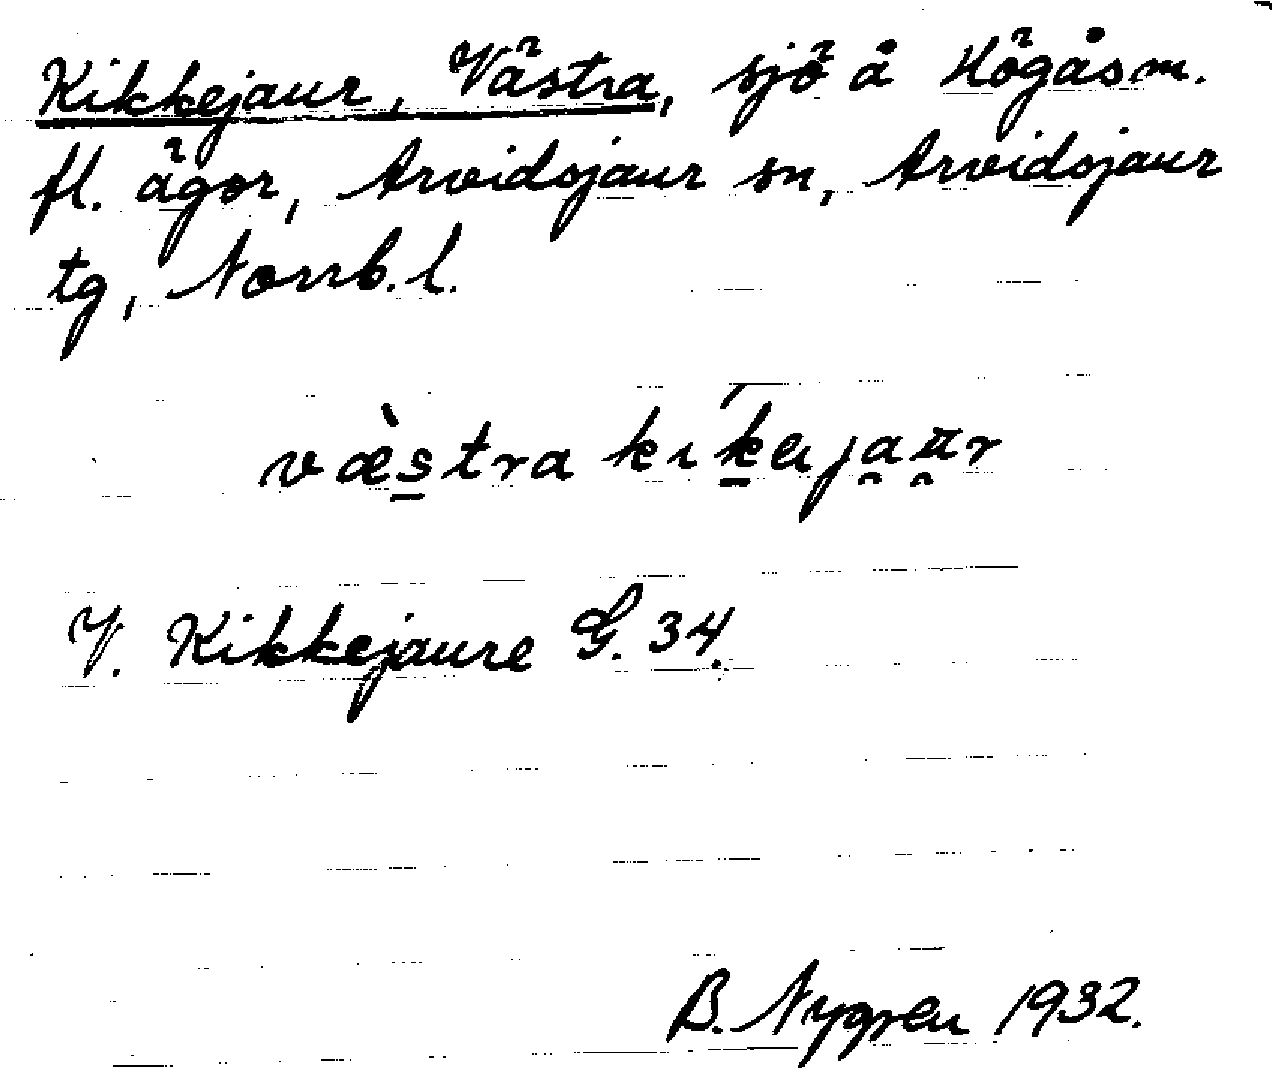 Kikkejaur, Västra, sjö å Högås m.
fl. ägor, Arvidsjaur sn, Arvidsjaur
tg, Norrb. l.
V. Kikkejaure G. 34.
B. Nygren 1932.